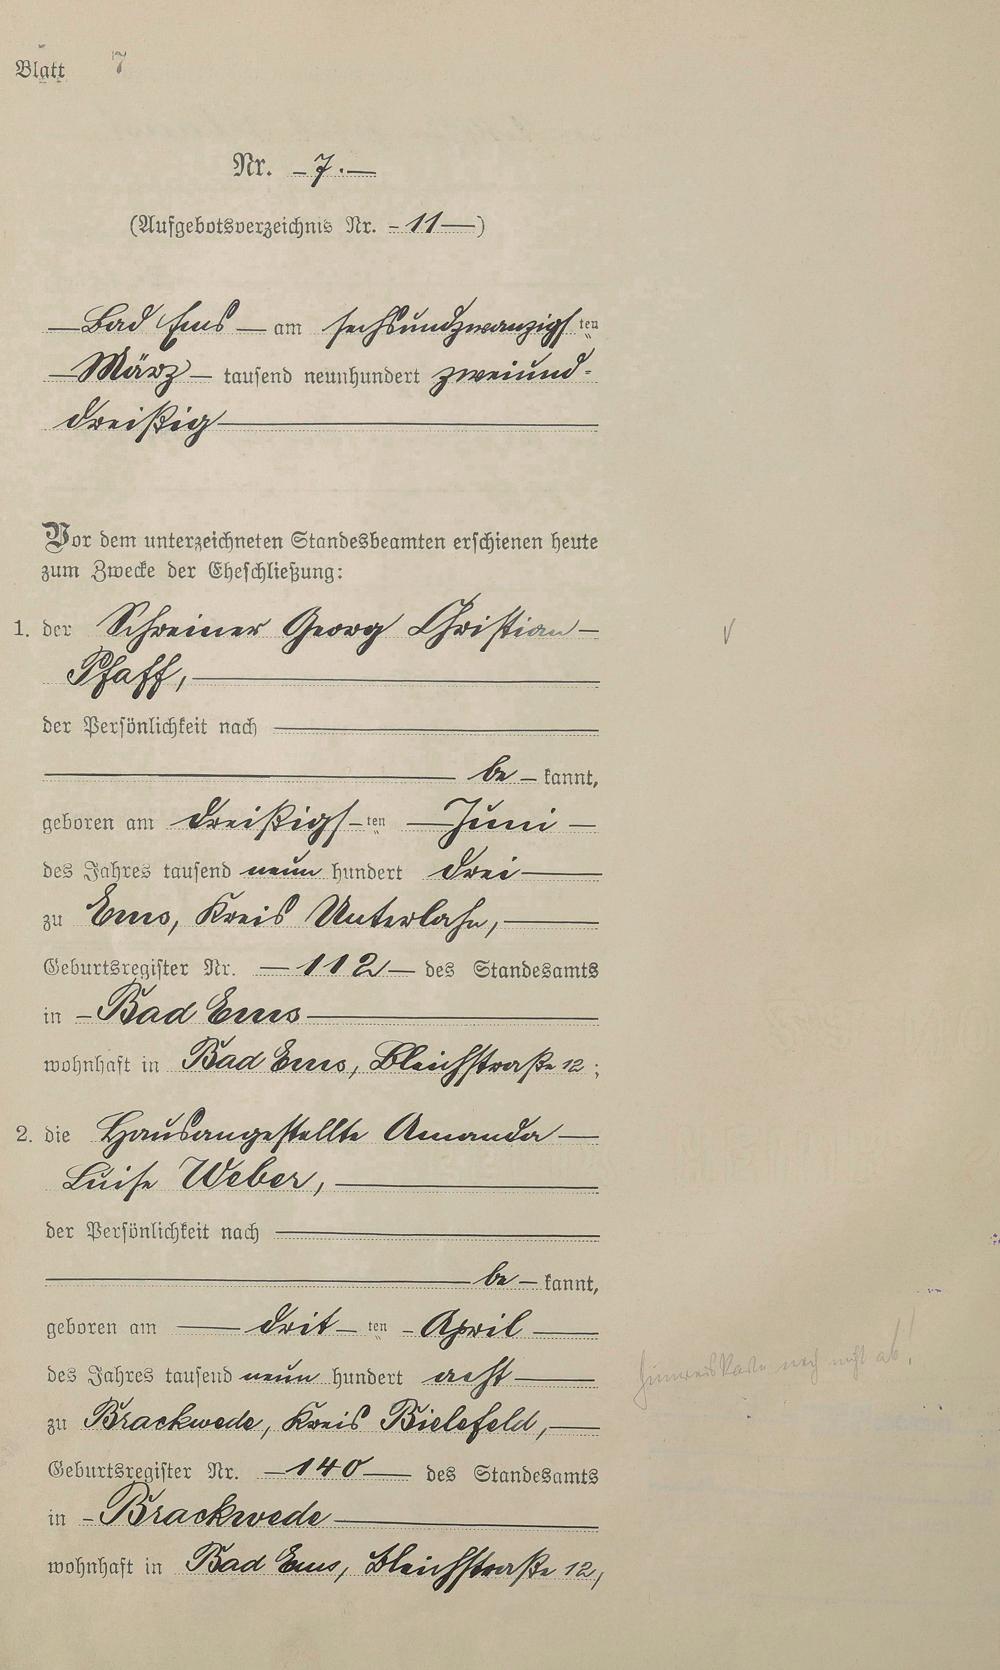 Blatt 7
Nr. 7.
(Aufgebotsverzeichnis Nr. 11)
Bad Ems am sechsundzwanzigs ten
März tausend neunhundert zweiund-
dreißig
Vor dem unterzeichneten Standesbeamten erschienen heute
zum Zwecke der Eheschließung:
1. der Schreiner Georg Christian
Pfaff,
der Persönlichkeit nach
be kannt,
geboren am dreißigs ten Juni
des Jahres tausend neun hundert drei
zu Ems, Kreis Unterlahn,
Geburtsregister Nr. 112 des Standesamts
in Bad Ems
wohnhaft in Bad Ems, Bleichstraße 12;
2. die Hausangestellte Amanda
Luise Weber,
der Persönlichkeit nach
be kannt,
geboren am drit ten April
des Jahres tausend neun hundert acht
zu Brackwede, Kreis Bielefeld,
Hinweiskarte noch nicht ab!
Geburtsregister Nr. 140 des Standesamts
in Brackwede
wohnhaft in Bad Ems, Bleichstraße 12,